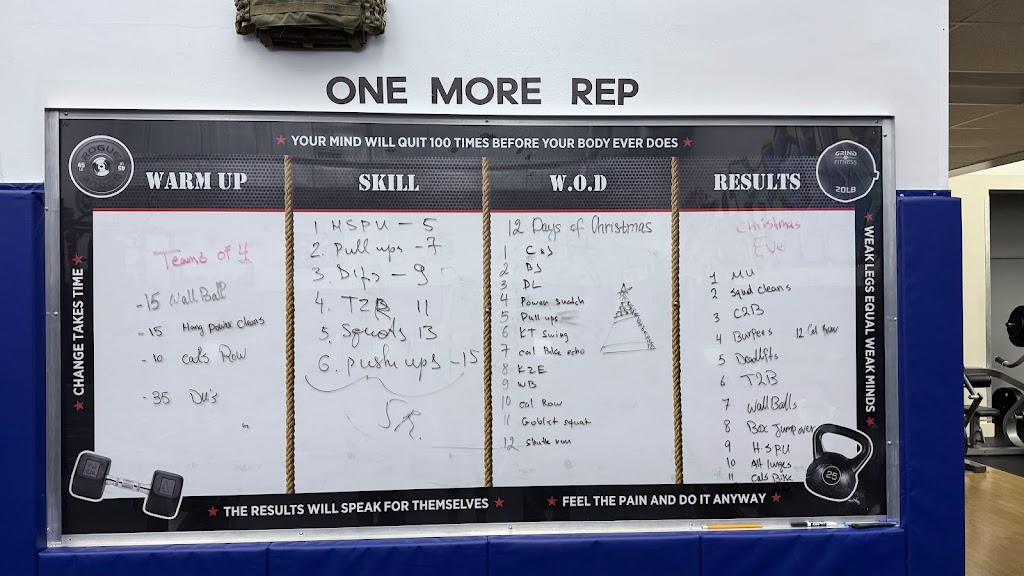 ONE MORE REP
★ YOUR MIND WILL QUIT 100 TIMES BEFORE YOUR BODY EVER DOES ★
ROGUE
GRIND
FITNESS
20LB
★ CHANGE TAKES TIME ★
WARM UP
Teams of 4
- 15 Wall Ball
- 15 Hang power cleans
- 10 cals Row
- 35 DU's
SKILL
1. HSPU - 5
2. Pull ups - 7
3. Dips - 9
4. T2B 11
5. Squats 13
6. push ups - 15
5R.
W.O.D
12 Days of Christmas
1 C&J
2 BJ
3 DL
4 Power snatch
5 Pull ups
6 KT Swing
7 cal Bike echo
8 K2E
9 WB
10 cal Row
11 Goblet squat
12 shuttle run
RESULTS
Christmas
Eve
1 MU
2 squd cleans
3 C2B
4 Burpees 12 Cal Row
5 Deadlifts
6 T2B
7 Wall Balls
8 Box Jump over
9 HSPU
10 Alt lunges
11 Cals Bike
★ WEAK LEGS EQUAL WEAK MINDS ★
★ THE RESULTS WILL SPEAK FOR THEMSELVES ★
★ FEEL THE PAIN AND DO IT ANYWAY ★